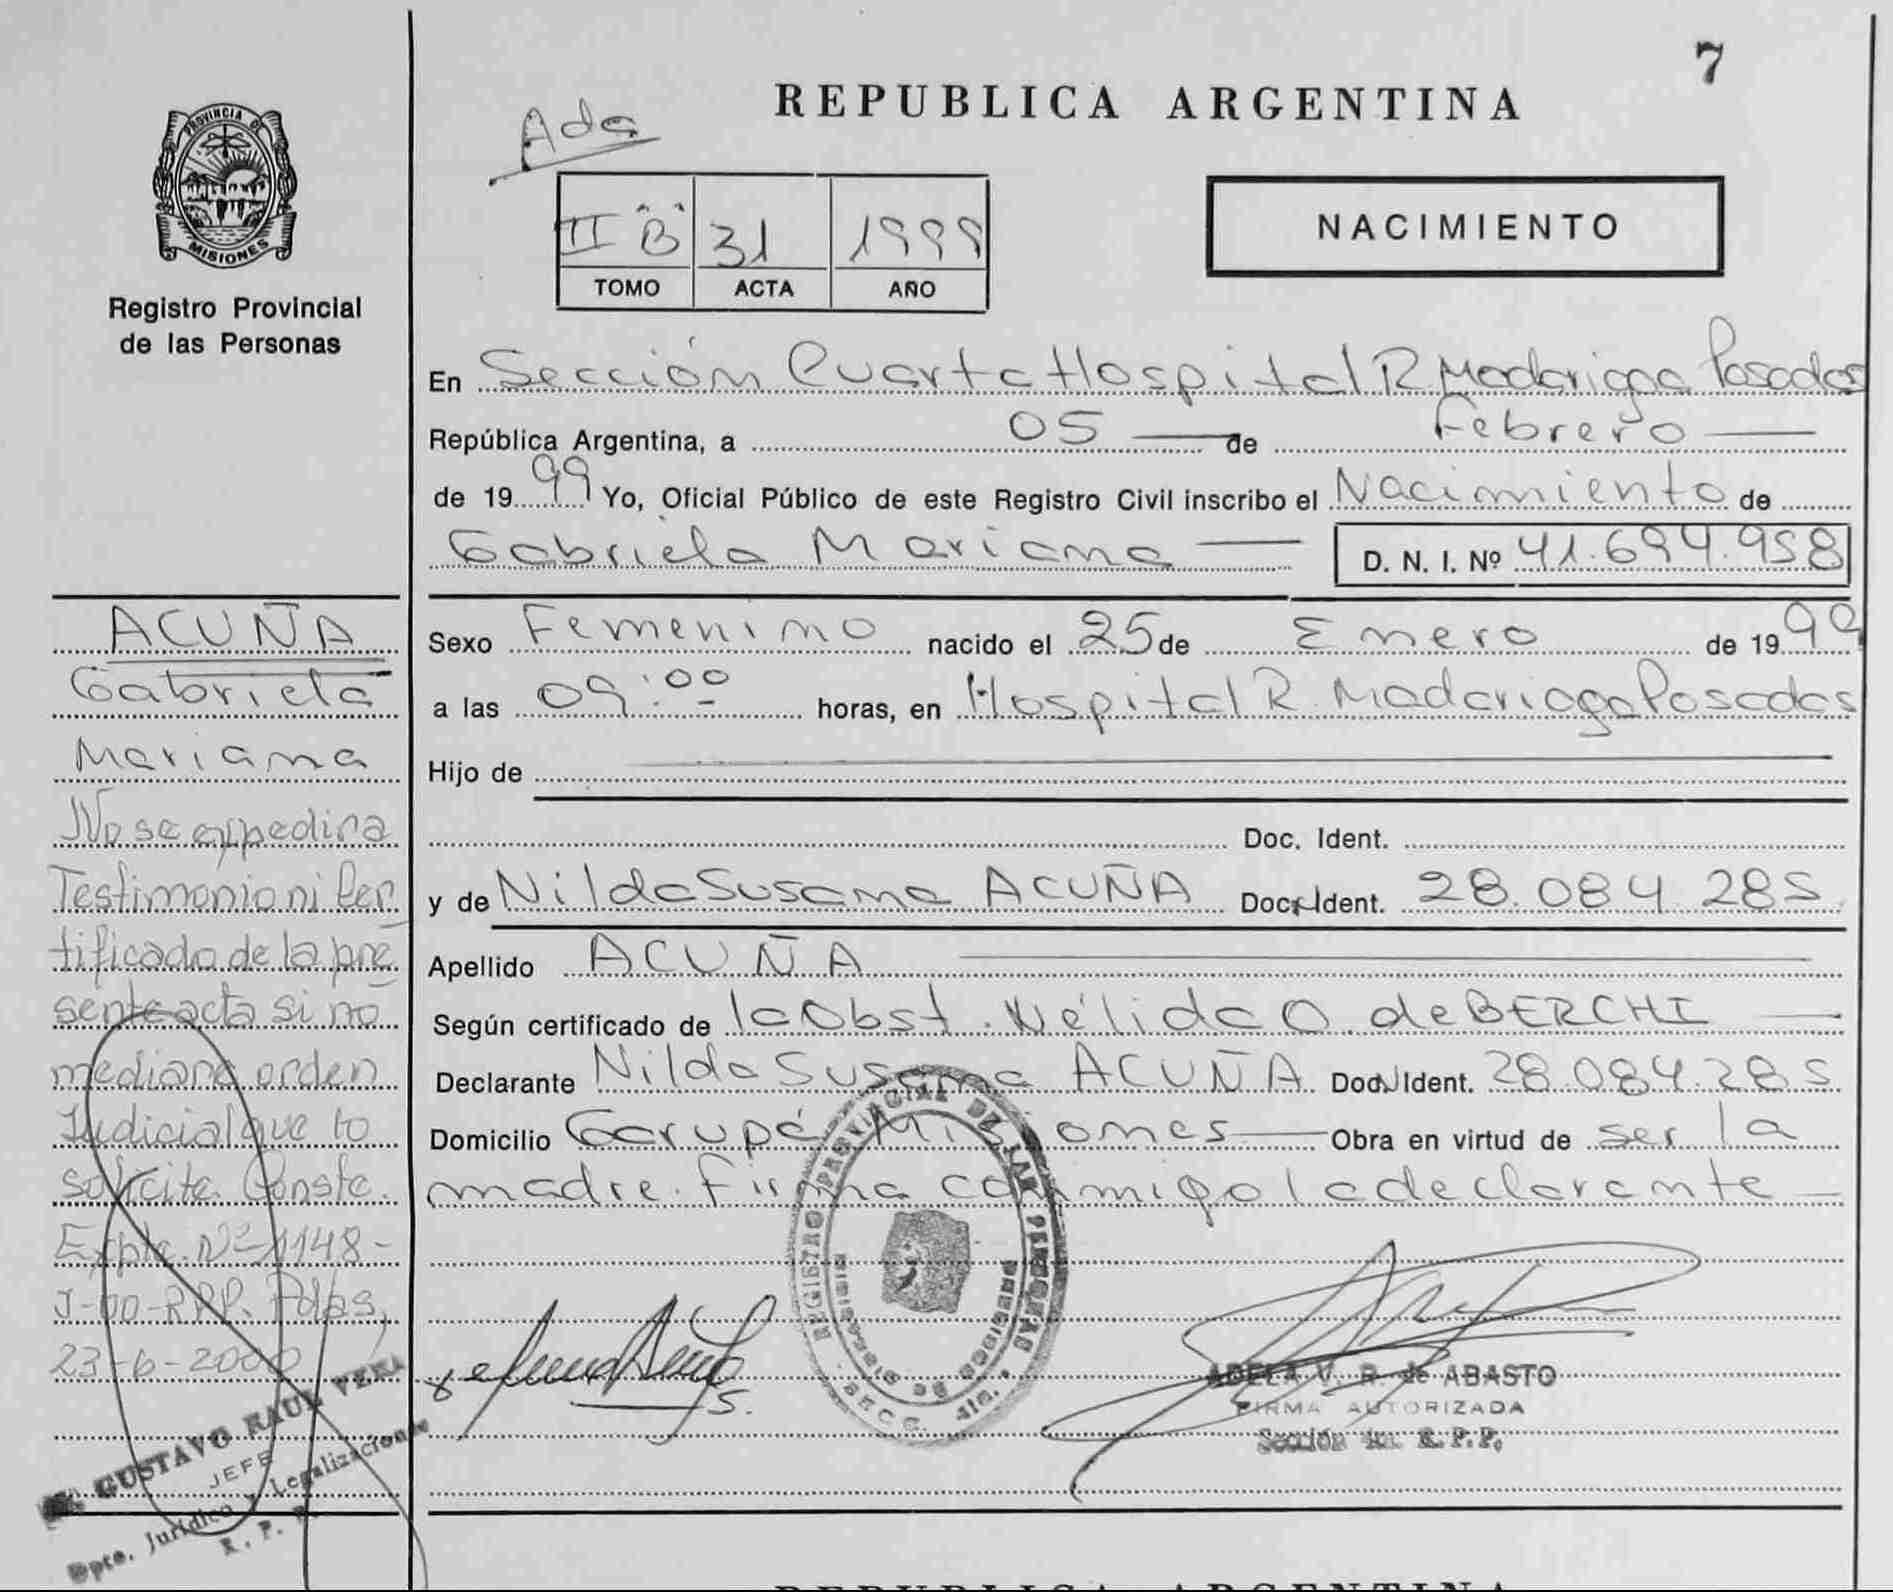 7
REPUBLICA ARGENTINA
Ada
PROVINCIA DE
MISIONES
Registro Provincial
de las Personas
II "B" 31 1999
TOMO ACTA AÑO
NACIMIENTO
En Sección Cuarta Hospital R Madariaga Posadas
República Argentina, a 05 de Febrero
de 1999 Yo, Oficial Público de este Registro Civil inscribo el Nacimiento de
Gabriela Mariana D. N. I. Nº 41.694.958
Sexo Femenino nacido el 25 de Enero de 1999
a las 09:00 horas, en Hospital R. Madariaga Posadas
Hijo de
Doc. Ident.
y de Nilda Susana ACUÑA Doc. Ident. 28.084.285
Apellido ACUÑA
Según certificado de la Obst. Nélida O. de BERCHI
Declarante Nilda Susana ACUÑA Doc. Ident. 28.084.285
Domicilio Garupá Misiones Obra en virtud de ser la
madre. Firma conmigo la declarante
ACUÑA
Gabriela
Mariana
No se expedira
Testimonio ni Cer
tificado de la pre
sente acta si no
mediare orden
Judicial que lo
solicite. Conste.
Expte. Nº 1148-
J-00-RPP. Pdas,
23-6-2000
GUSTAVO RAUL VERA
JEFE
Dpto. Jurídico y Legalizaciones
R. P. P.
REGISTRO PROVINCIAL DE LAS PERSONAS
SECC. 4ta.
ADELA V. R. de ABASTO
FIRMA AUTORIZADA
Sección 4ta. R.P.P.
REPUBLICA ARGENTINA